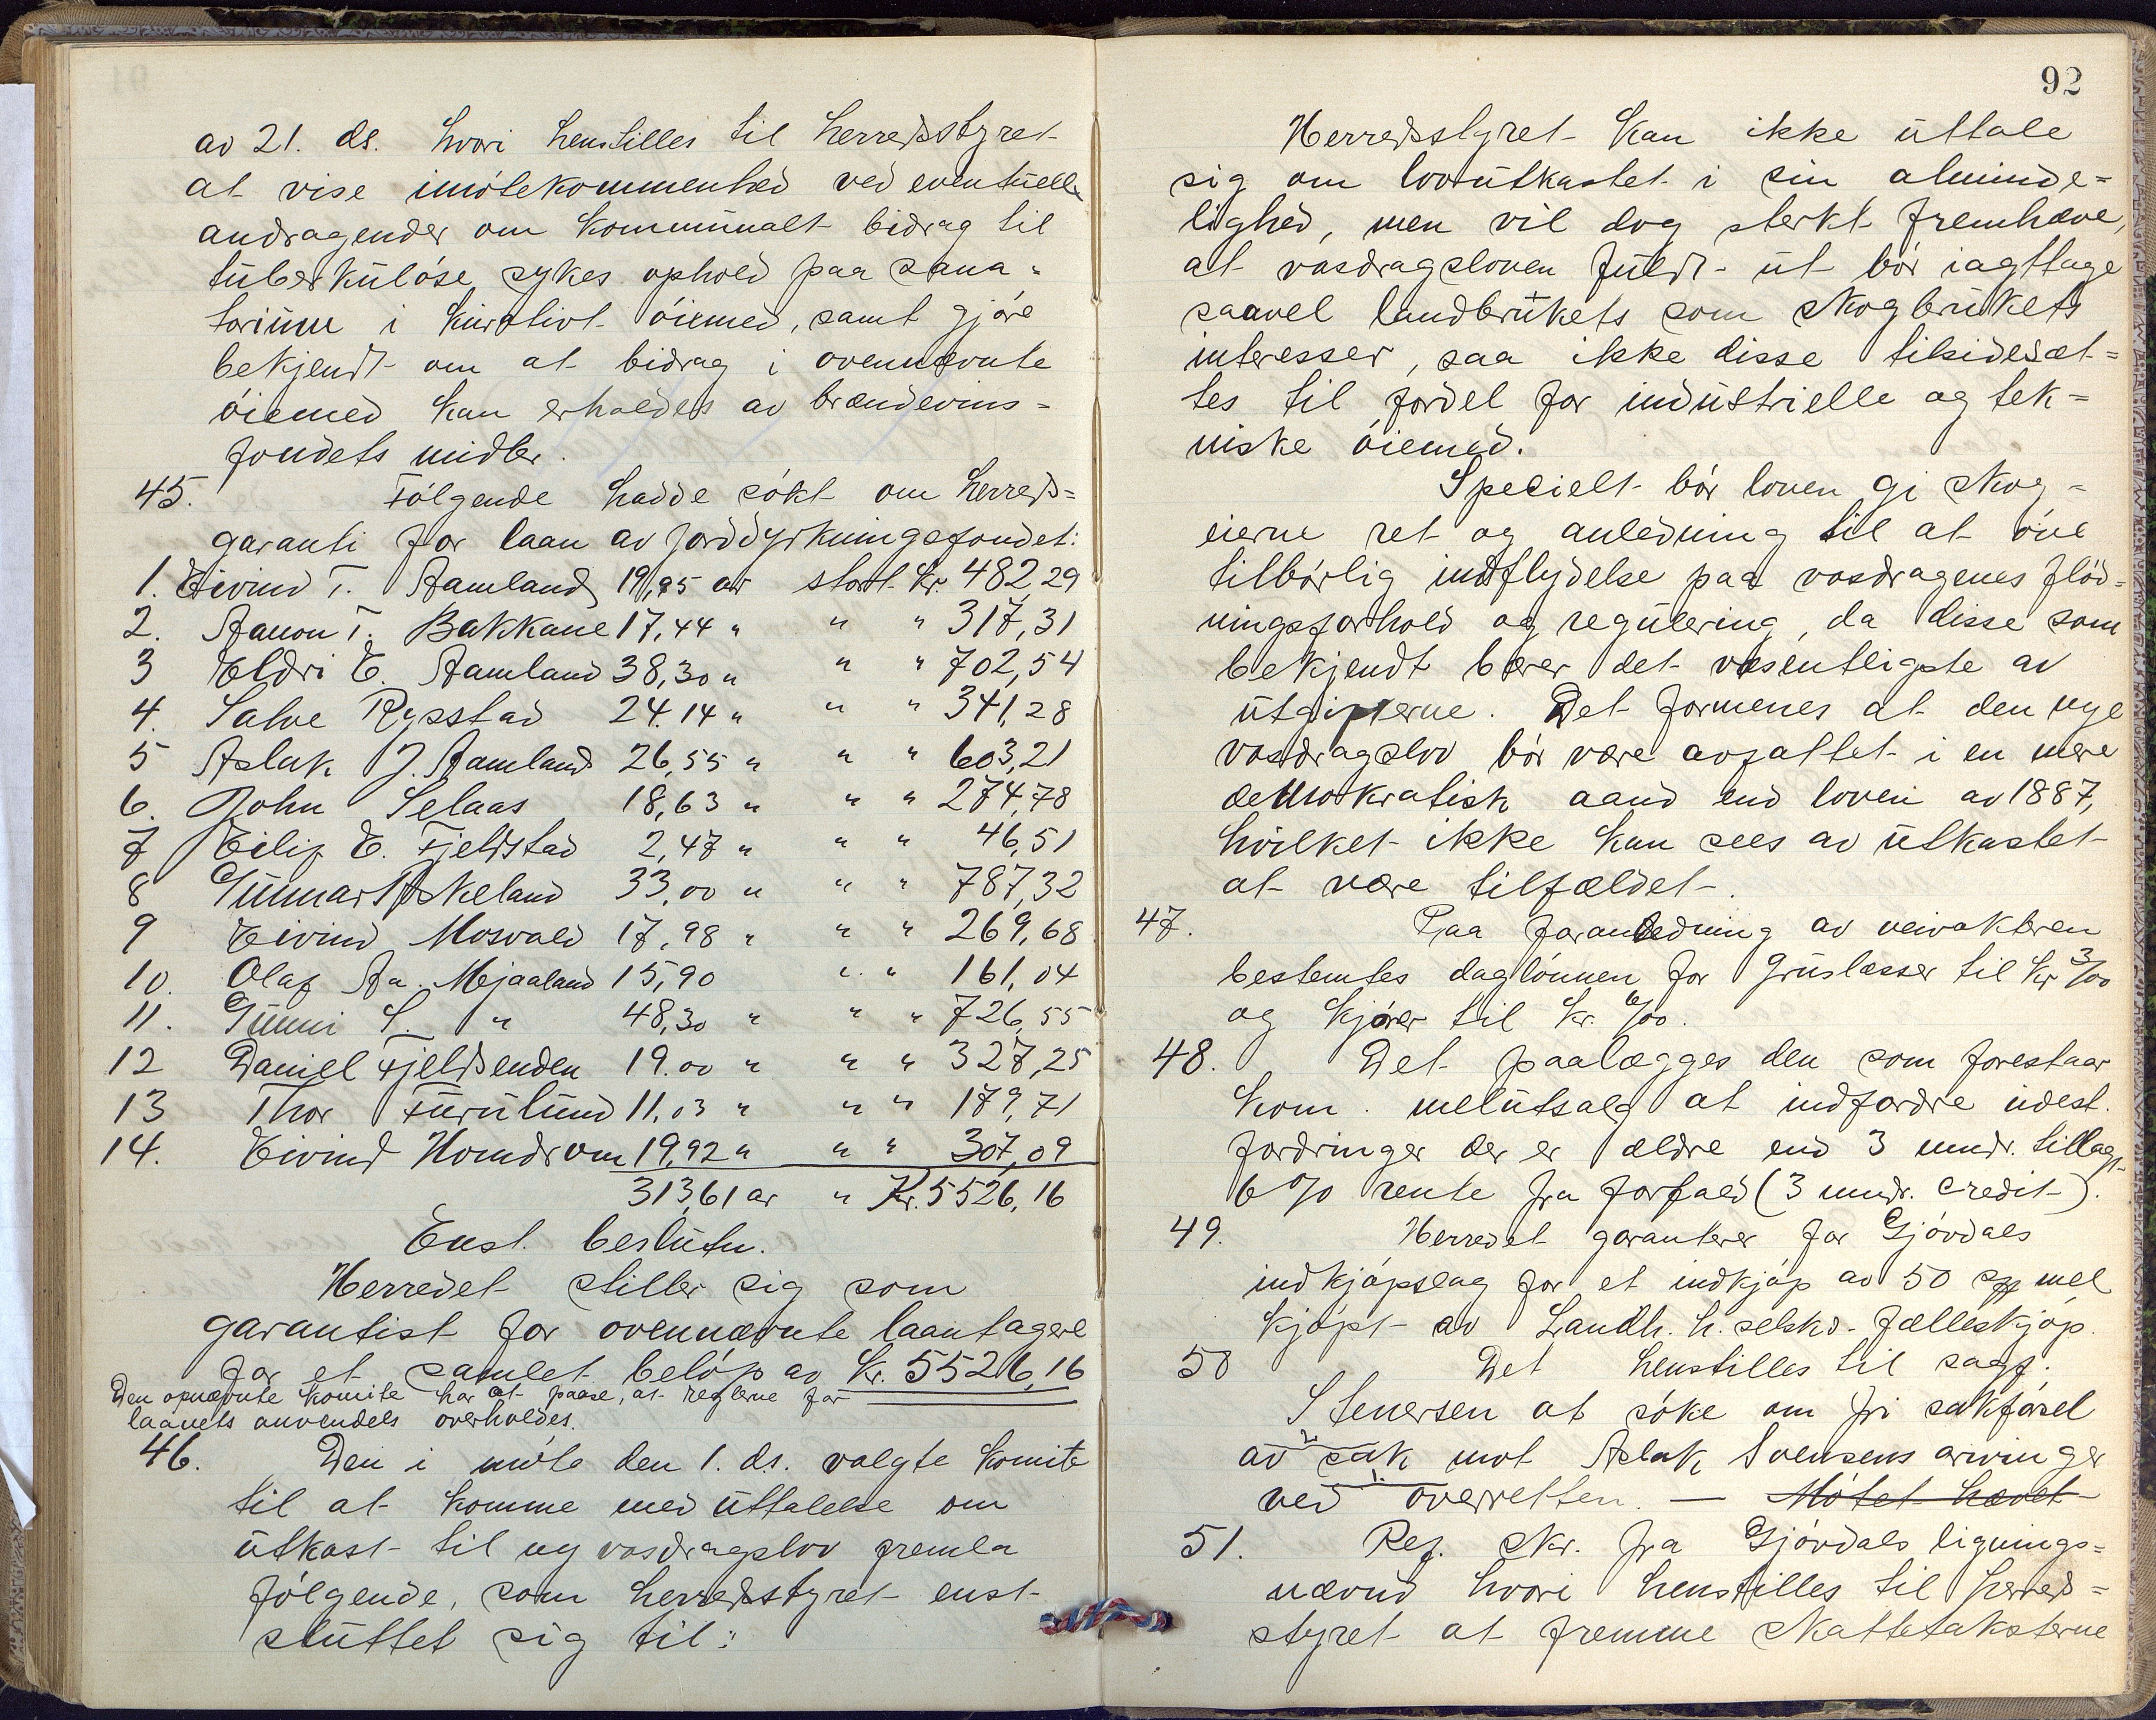 av 21. ds. hvori henstilles til herredsstyret
at vise imøtekommenhed ved eventuelle
andragender om kommunalt bidrag til
tuberkuløse sykes ophold paa sana-
torium i kurativt øiemed, samt gjøre
bekjendt om at bidrag i ovennævnte
øiemed kan erholdes av brændevins-
fondets midler.
45. Følgende hadde søkt om herreds-
garanti for laan av jorddyrkningsfondet:
1. Eivind T. Aamland 19,95 ar stort. Kr. 482,29
2. Aanon T. Bakkane 17,44 " " " 317,31
3 Eldri E. Aamland 38,30 " " " 702,54
4. Salve Rysstad 24.14 " " " 341,28
5 Aslak J. Aamland 26,55 " " " 603,21
6. John Selaas 18,63 " " " 274,78
7 Eilif E. Fjeldstad 2,47 " " " 46,51
8 Gunnar Askeland 33,00 " " " 787,32
9 Eivind Mosvald 17,98 " " " 269,68
10. Olaf Aa. Mjaaland 15,90 " " 161,04
11. Gunni S. " 48,30 " " " 726,55
12 Daniel Fjeldsenden 19.00 " " " 327,25
13 Thor Furulund 11,03 " " " 179,71
14. Eivind Homdrom 19,92 " " " 307,09
313,61 ar " Kr. 5526,16
Enst. beslutn.
Herredet stiller sig som
garantist for ovennævnte laantagere
for et samlet beløp av Kr. 5526,16
Den opnævnte komite har at paase, at reglerne for
laanets anvendels overholdes.
46. Den i møte den 1. ds. valgte komite
til at komme med uttalelse om
utkast til ny vasdragslov fremla
følgende, som herredsstyret enst.
sluttet sig til:
92
Herredsstyret kan ikke uttale
sig om lovutkastet i sin alminde-
lighed, men vil dog sterkt fremhæve,
at vasdragsloven fuldt ut bør iagttage
saavel landbrukets som skogbrukets
interesser, saa ikke disse tilsidesæt-
tes til fordel for industrielle og tek-
niske øiemed.
Specielt bør loven gi skog-
eierne ret og anledning til at øve
tilbørlig indflydelse paa vasdragenes flød-
ningsforhold og regulering, da disse som
bekjendt bærer det væsentligste av
utgifterne. Det formenes at den nye
vasdragslov bør være avfattet i en mere
demokratisk aand end loven av 1887,
hvilket ikke kan sees av utkastet
at være tilfældet.
47. Paa foranledning av veivakteren
bestemtes daglønnen for gruslæsser til Kr 3/00
og kjører til Kr. 6/00.
48. Det paalægges den som forestaar
kom. melutsalg at indfordre utest.
fordringer der er ældre end 3 mndr. tillagt
6% rente fra forfald (3 mndr. credit).
49. Herredet garanterer for Gjøvdals
indkjøpslag for et indkjøp av 50 mel
kjøpt av Landh. h. selsk. fælleskjøp.
50 Det henstilles til sagf.
Stenersen at søke om fri sakførsel
av 2 sak mot Aslak Svensens arvinger
ved 1. overretten. — Møtet hævet
51. Ref. skr. fra Gjøvdals lignings-
nævnd hvori henstilles til herred-
styret at fremme skattetaksterne